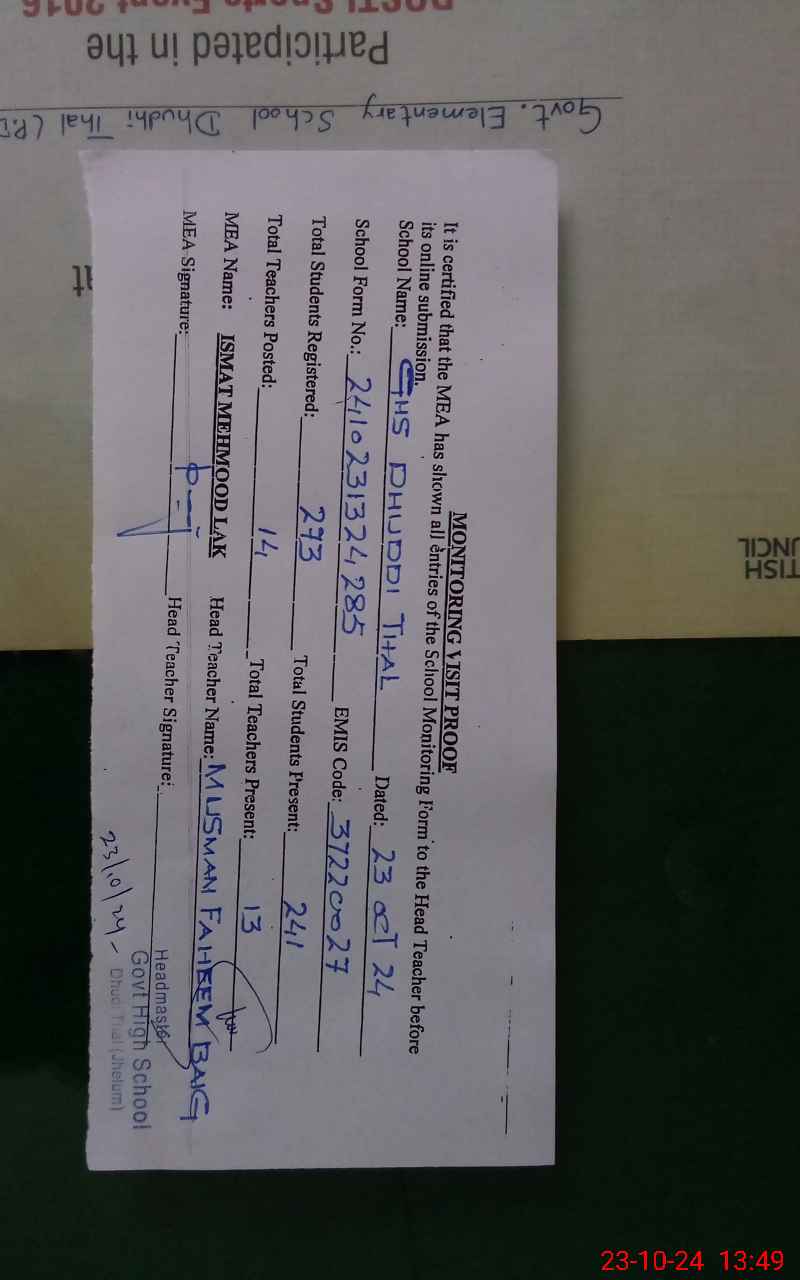 POSTI Sports Event 2016
Participated in the
Govt. Elementary School Dhudhi Thal (P.D
MONITORING VISIT PROOF
It is certified that the MEA has shown all entries of the School Monitoring Form to the Head Teacher before
its online submission.
School Name: GHS DHUDDI THAL Dated: 23 OCT 24
School Form No.: 2410231324285 EMIS Code: 37220027
Total Students Registered: 293 Total Students Present: 241
Total Teachers Posted: 14 Total Teachers Present: 13
MEA Name: ISMAT MEHMOOD LAK Head Teacher Name: MUSMAN FAHEEM BAIG
MEA Signature: Head Teacher Signature:
Headmaster
Govt High School
Dhudi Thal (Jhelum)
23/10/24
TISH
UNCIL
23-10-24 13:49